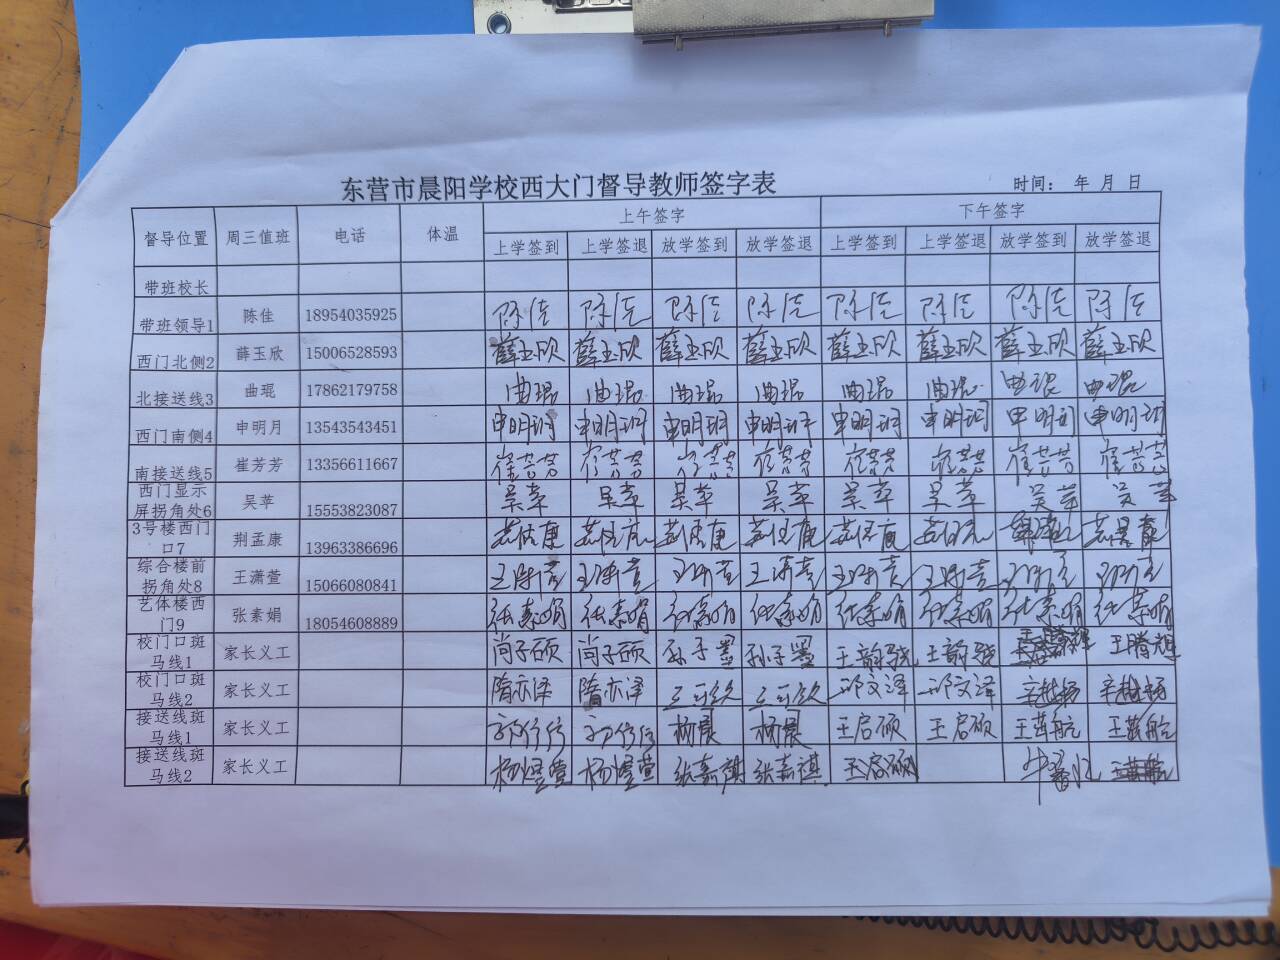 东营市晨阳学校西大门督导教师签字表
时间： 年 月 日
督导位置 周三值班 电话 体温 上午签字 下午签字
上学签到 上学签退 放学签到 放学签退 上学签到 上学签退 放学签到 放学签退
带班校长
带班领导1 陈佳 18954035925 陈佳 陈佳 陈佳 陈佳 陈佳 陈佳 陈佳 陈佳
西门北侧2 薛玉欣 15006528593 薛玉欣 薛玉欣 薛玉欣 薛玉欣 薛玉欣 薛玉欣 薛玉欣 薛玉欣
北接送线3 曲琨 17862179758 曲琨 曲琨 曲琨 曲琨 曲琨 曲琨 曲琨 曲琨
西门南侧4 申明月 13543543451 申明 申明 申明 申明 申明 申明 申明 申明
南接送线5 崔芳芳 13356611667 崔芳芳 崔芳芳 崔芳芳 崔芳芳 崔芳芳 崔芳芳 崔芳芳 崔芳芳
西门显示
屏拐角处6 吴苹 15553823087 吴苹 吴苹 吴苹 吴苹 吴苹 吴苹 吴苹 吴苹
3号楼西门
口7 荆孟康 13963386696
综合楼前
拐角处8 王潇萱 15066080841
艺体楼西
门9 张素娟 18054608889 张素娟 张素娟 张素娟 张素娟 张素娟 张素娟 张素娟 张素娟
校门口斑
马线1 家长义工 尚子硕 尚子硕 孙子墨 孙子墨 王韵骁 王韵骁 王腾翔
校门口斑
马线2 家长义工 隋亦泽 隋亦泽 邱文泽 邱文泽 辛越扬 辛越扬
接送线斑
马线1 家长义工 杨晨 杨晨 王启硕 王启硕 王茜航 王茜航
接送线斑
马线2 家长义工 杨煜萱 杨煜萱 张嘉祺 张嘉祺 王启硕